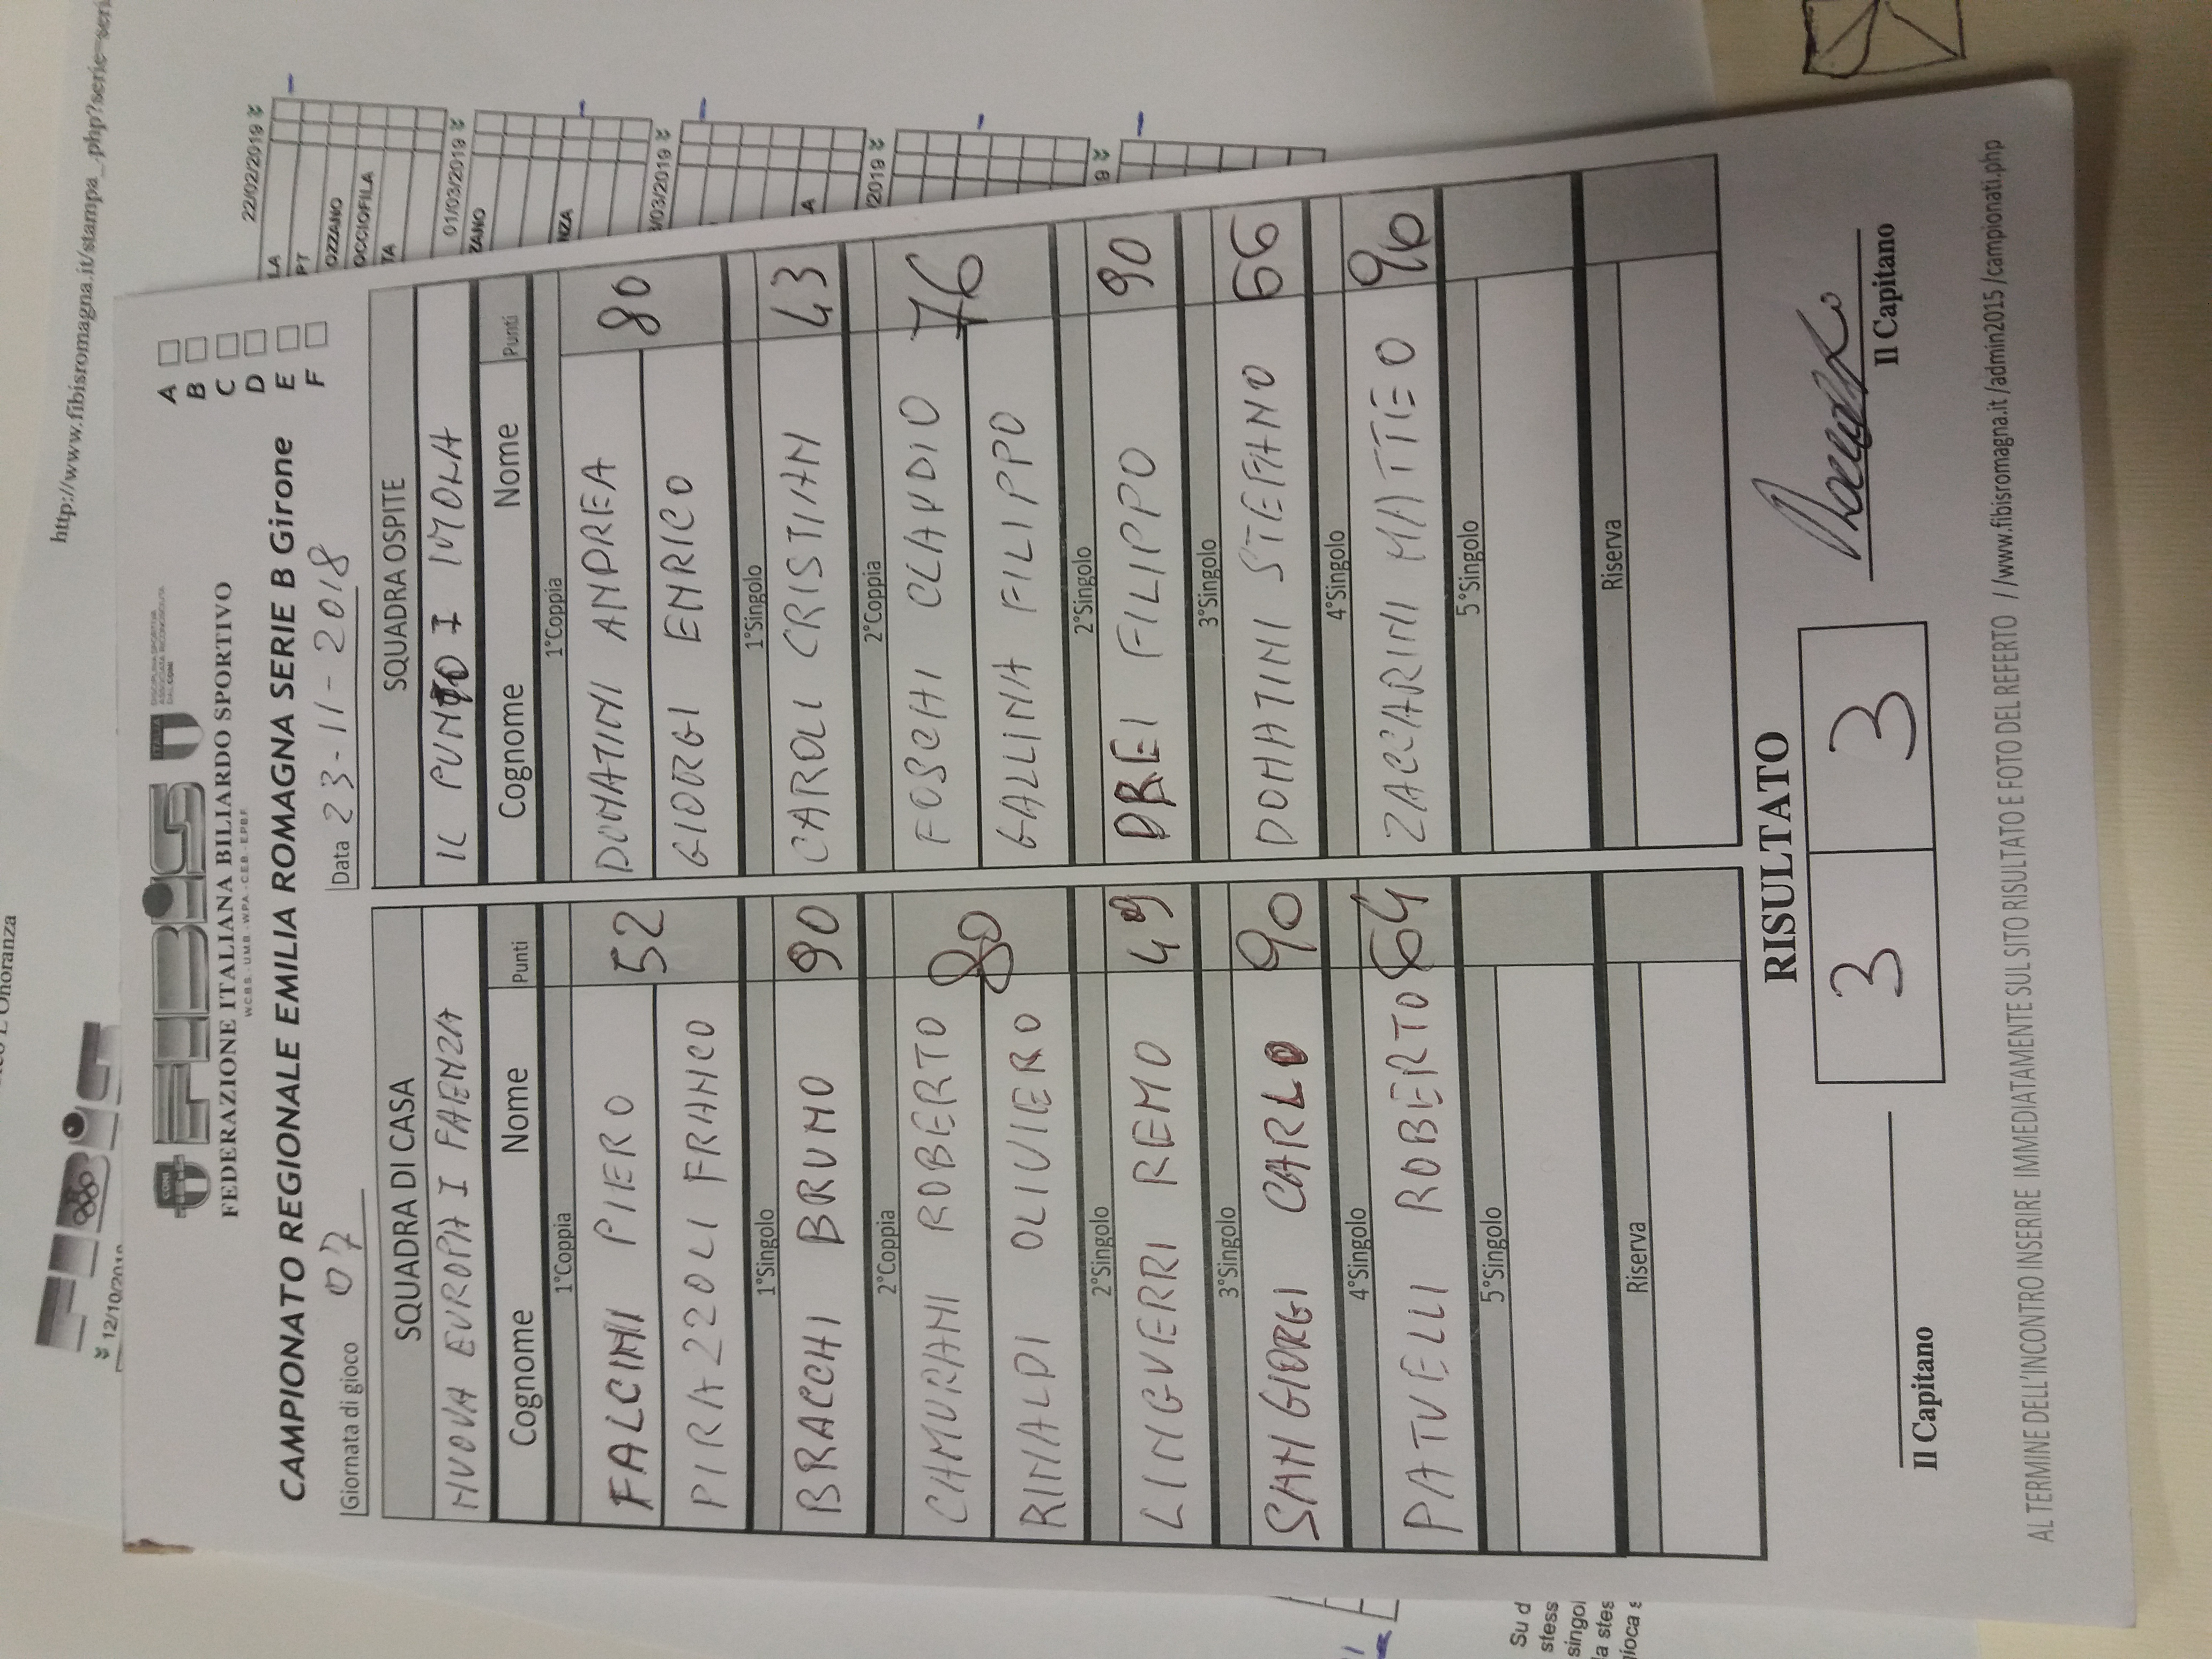 http://www.fibisromagna.it/stampa_.php?serie=seri
22/02/2019
OZZANO
OCCIOFILA
01/03/2019
ZANO
/03/2019
/2019
12/10/201
Onoranza
FIBIS
FEDERAZIONE ITALIANA BILIARDO SPORTIVO
W.C.B.S. - U.M.B. - W.P.A. - C.E.B. - E.P.B.F.
CAMPIONATO REGIONALE EMILIA ROMAGNA SERIE B Girone
A
B
C
D
E
F
Giornata di gioco 07
Data 23-11-2018
SQUADRA DI CASA
NUOVA EUROPA I FAENZA
Cognome Nome Punti
1°Coppia
FALCINI PIERO 52
PIRAZZOLI FRANCO
1°Singolo
BRACCHI BRUNO 90
2°Coppia
CAMURANI ROBERTO 80
RINALDI OLIVIERO
2°Singolo
LINGUERRI REMO 49
3°Singolo
SANGIORGI CARLO 90
4°Singolo
PATUELLI ROBERTO 64
5°Singolo
Riserva
SQUADRA OSPITE
IL PUNTO I IMOLA
Cognome Nome Punti
1°Coppia
DONATINI ANDREA 80
GIORGI ENRICO
1°Singolo
CAROLI CRISTIAN 43
2°Coppia
FOSCHI CLAUDIO 76
GALLINA FILIPPO
2°Singolo
DREI FILIPPO 90
3°Singolo
DONATINI STEFANO 66
4°Singolo
ZACCARINI MATTEO 90
5°Singolo
Riserva
RISULTATO
3 3
Il Capitano
Il Capitano
AL TERMINE DELL'INCONTRO INSERIRE IMMEDIATAMENTE SUL SITO RISULTATO E FOTO DEL REFERTO //www.fibisromagna.it /admin2015 /campionati.php
Su d
stess
singol
la stes
gioca s